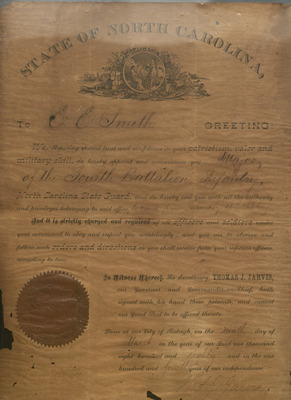 STATE OF NORTH CAROLINA,
To E. E. Smith GREETING
We, reposing special trust and confidence in your patriotism, valor and
military skill, do hereby appoint and commission you Major
of the Fourth Battalion Infantry,
North Carolina State Guard. And do hereby vest you with all the authority
and privileges
And it is strictly charged and required of all officers and soldiers under
your command to obey and respect you accordingly and you are to observe and
follow such orders and directions as you shall receive from your superior officers,
according to law.
In Witness Whereof, His Excellency, THOMAS J. JARVIS,
our Governor and Commander-in-Chief, hath
signed with his hand these presents, and caused
our Great Seal to be affixed thereto.
Done at our City of Raleigh, on the day of
March in the year of our Lord one thousand
eight hundred and eighty and in the one
hundred and fourth year of our independence